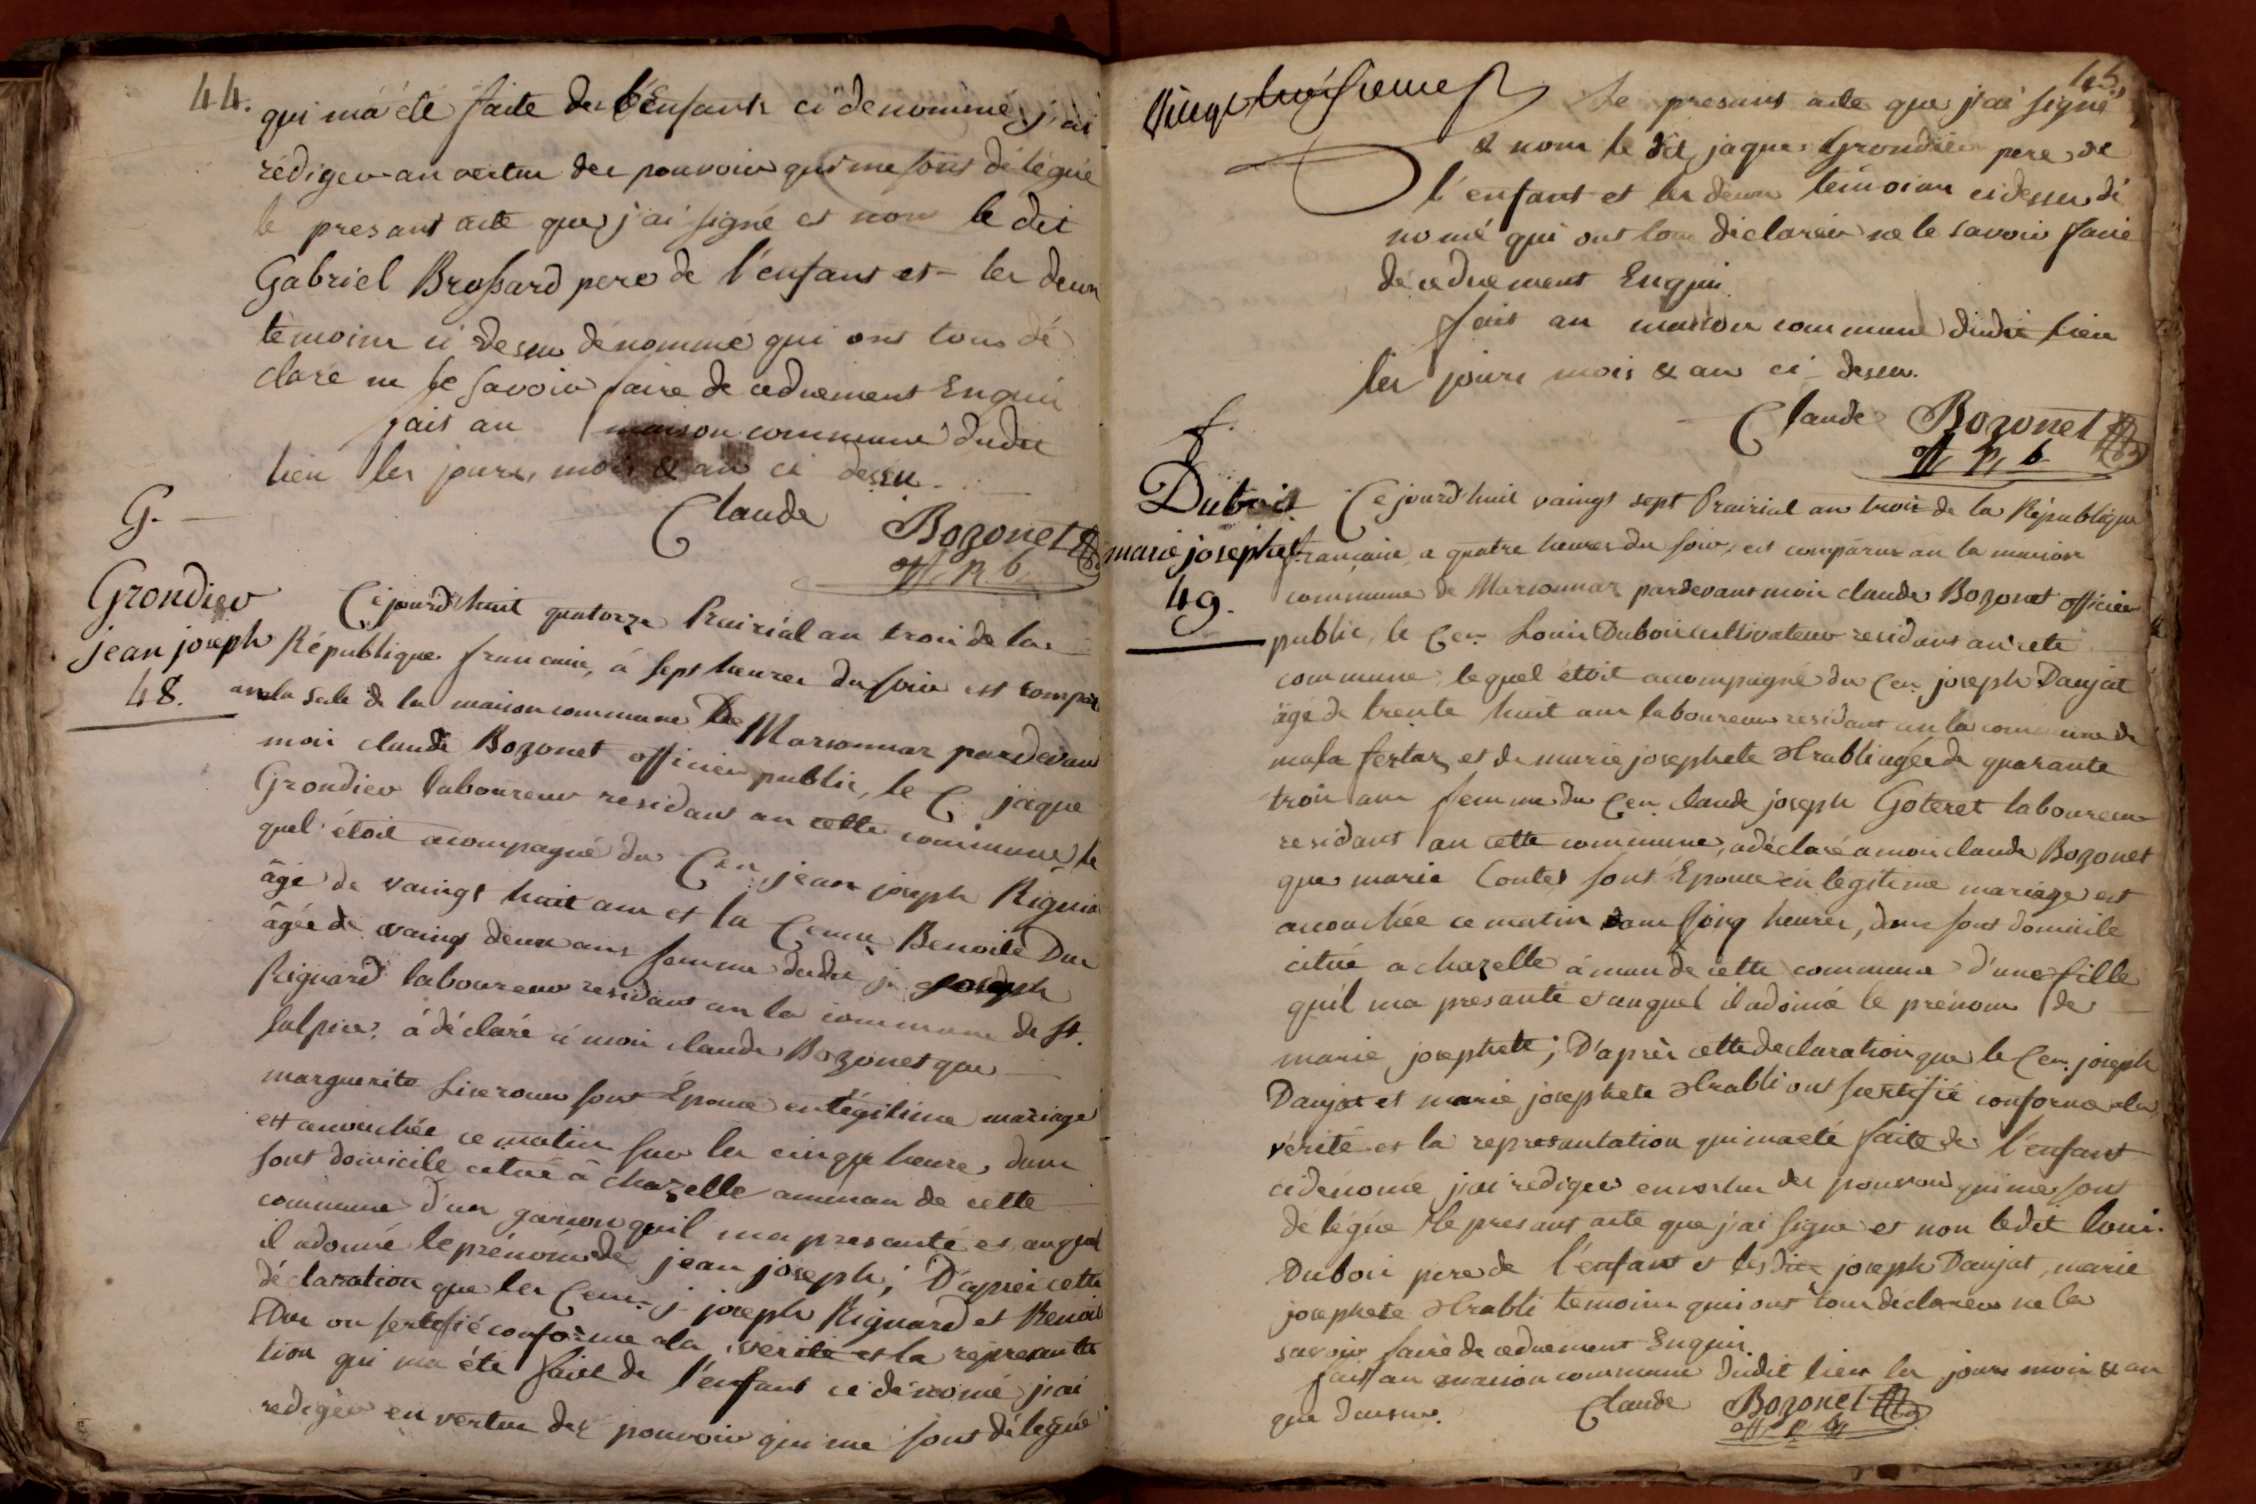 44.
qui ma été faite de l'Enfant ci denommé j'ai
rédiger an vertu des pouvoir qui me sont délégué
le presant acte que j'ai signé et non le dit
Gabriel Brossard pere de l'enfant et les deux
temoins ci desus dénommé qui ont tous dé
claré ne le savoir faire de ceduement Enquis
fait an maison commune dudit
lieu les jours, mois & an ci desus.
Claude Bozonet
off. p. b.
G.
Grondier
jean joseph
48.
Cejourd'huit quatorze Prairial an trois de la
République francaise, à sept heures du soir est compar
an la sale de la maison commune De Marsonnax pardevant
moi claude Bozonet officier public, le C. jaque
Grondier laboureur residant an cette commune le
quel étoit acompagné du Cen jean joseph Rignard
âgé de vaingt huit ans et la Cenne Benoite Duc
âgée de vaingt deux ans femme dudit j. joseph
Rignard laboureur residant an la commune de St.
Sulpice, à déclaré à moi claude Bozonet que
marguerite sont Epouse en légitime mariage
est acouchée ce matin sur les cinque heures, dans
sont domicile citué à chazelle amman de cette
commune d'un garson quil ma presanté et auquel
il adonné le prénom de jean joseph; D'après cette
déclaration que les Cens. j. joseph Rignard et Benoit
Duc on sertifié conforme ala vérité et la represanta
tion qui ma été faite de l'enfant ci dénomé j'ai
rediger en vertu des pouvoir qui me sont délégué
45.
Vingt troisieme f
le presant acte que j'ai signé
& nom le dit jaque Grondier pere de
l'enfant et les deux temoins cidesus dé
nomé qui ont tous declarér ne le savoir faire
de ceduement Enquis.
fait an maison commune dudit lieu
les jours mois & an ci desus.
Claude Bozonet
off. p. b
f.
Dubois
marie josephete
49.
Cejourd'huit vaingt sept Prairial an trois de la République
francaise, a quatre heures du soir, est comparus an la maison
commune de Marsonnax pardevant moi claude Bozonet officier
public, le Cen. Louis Dubois cultivateur residant an cete
commune, lequel étoit acompagné du Cen. joseph Danjat
âgé de trente huit ans laboureur residant an la commune de
mala fertaz, et de marie josephete Hrabli agée de quarante
trois ans femme du Cen. claude joseph Goteret laboureur
residant an cette commune, adéclaré a moi claude Bozonet
que marie Contet sont Epouse en legitime mariage est
acouchée ce matin dans sinq heures, dans sont domicile
citué a chazelle aman de cette commune d'une fille
quil ma presanté et auquel il adoné le prénom de
marie josephete; D'après cette declaration que le Cen. joseph
Danjat et marie josephete Hrabli ont sertifié conforme ala
vérité et la represantation qui ma eté faite de l'enfant
ci dénomé j'ai rediger en vertu des pouvoir qui me sont
délégue le presant acte que j'ai signe et non ledit loui.
Dubois pere de l'enfant et lesdits joseph Danjat, marie
josephete Hrabli temoins qui ont tous declarer ne la
savoir faire de ceduement Enquis
fait an maison commune dudit lieu les jours mois & an
que desus. Claude Bozonet
off. p. b